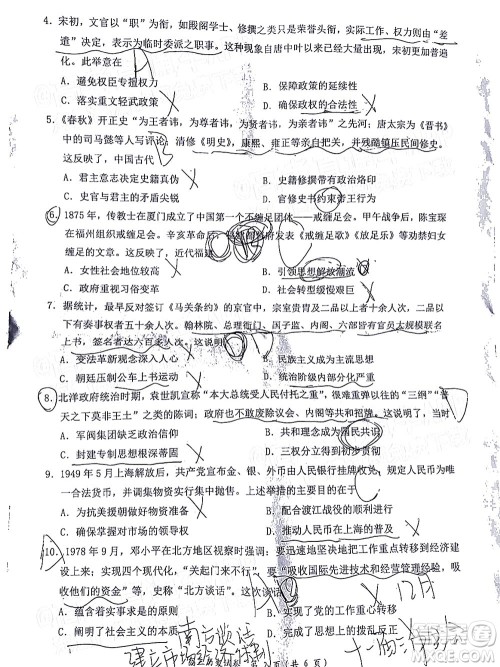 4. 宋初，文官以“职”为衔，如殿阁学士、修撰之类只是荣誉头衔，实际工作、权力则由“差
遣”决定，表示为临时委派之职事。这种现象自唐中叶以来时有出现，宋初更加普遍
化。此举意在
A. 避免权臣专擅相权 B. 保障政策的延续性
C. 落实重文轻武政策 D. 确保政权的合法性
5. 《春秋》开正史“为王者讳，为尊者讳，为贤者讳，为亲者讳”之先河；唐太宗为《晋书》
中的司马懿等人写评论；清修《明史》，康熙、雍正等亲自把关，并残酷镇压民间修史。
这反映出，中国古代
A. 君主意志决定史籍真伪 B. 史籍修撰带有政治烙印
C. 史官与君主的矛盾尖锐 D. 官修史书约束帝王行为
6. 1875 年，传教士在厦门成立了中国第一个不缠足团体——戒缠足会。甲午战争后，陈宝琛
在福州组织戒缠足会。辛亥革命前后，
府发表《戒缠足歌》《放足乐》等文鼓励妇女
缠足的文章。这反映了，近代福建
A. 女性社会地位较高 B. 引领思想解放潮流
C. 重视移易习俗 D. 社会转型缓慢艰巨
7. 据统计，最早反对签订《马关条约》的京官中，宗室贵胄及二品以上者十余人次，二品以
下有奏事权者五十余人次。翰林院、总理衙门、国子监、内阁、六部皆有官员大规模联名
上书，签名者达六百余人次。这说明
A. 变法革新观念深入人心 B. 民族主义成为主流思想
C. 朝廷压制公车上书运动 D. 统治阶级内部分化严重
8. 北洋政府统治时期，袁世凯宣称“本大总统受人民付托之重”，很难重弹以往的“三纲”“普
天之下莫非王土”之类的陈词；政府也不敢废除议会、内阁等共和招牌。这说明，
A. 军阀集团缺乏政治信仰 B. 共和思想成为国民共识
C. 封建专制思想根深蒂固
9. 1949 年 5 月上海解放后，共产党宣布金、银、外币由人民银行挂牌收兑，规定人民币为本
位币，并调集物资实行集中抛售。上述措施意在
A. 为抗美援朝储存物资 B. 配合渡江战役的顺利进行
C. 确保对市场的领导 D. 推动人民币在上海的普及
10. 1978 年 9 月，邓小平在北方地区视察时强调：要迅速坚决地把工作重点转移到经济建
设上来；实现四个现代化，“关起门来不行”，要“吸收国际先进技术和经营管理经验，吸
收他们的资金”。这些“北方谈话”
A. 蕴含了改革开放的理念 B. 实现了党的工作重心转移
C. 阐明了社会主义的本质 D. 完成了思想上的拨乱反正
12月
南方谈话
共 6 页）